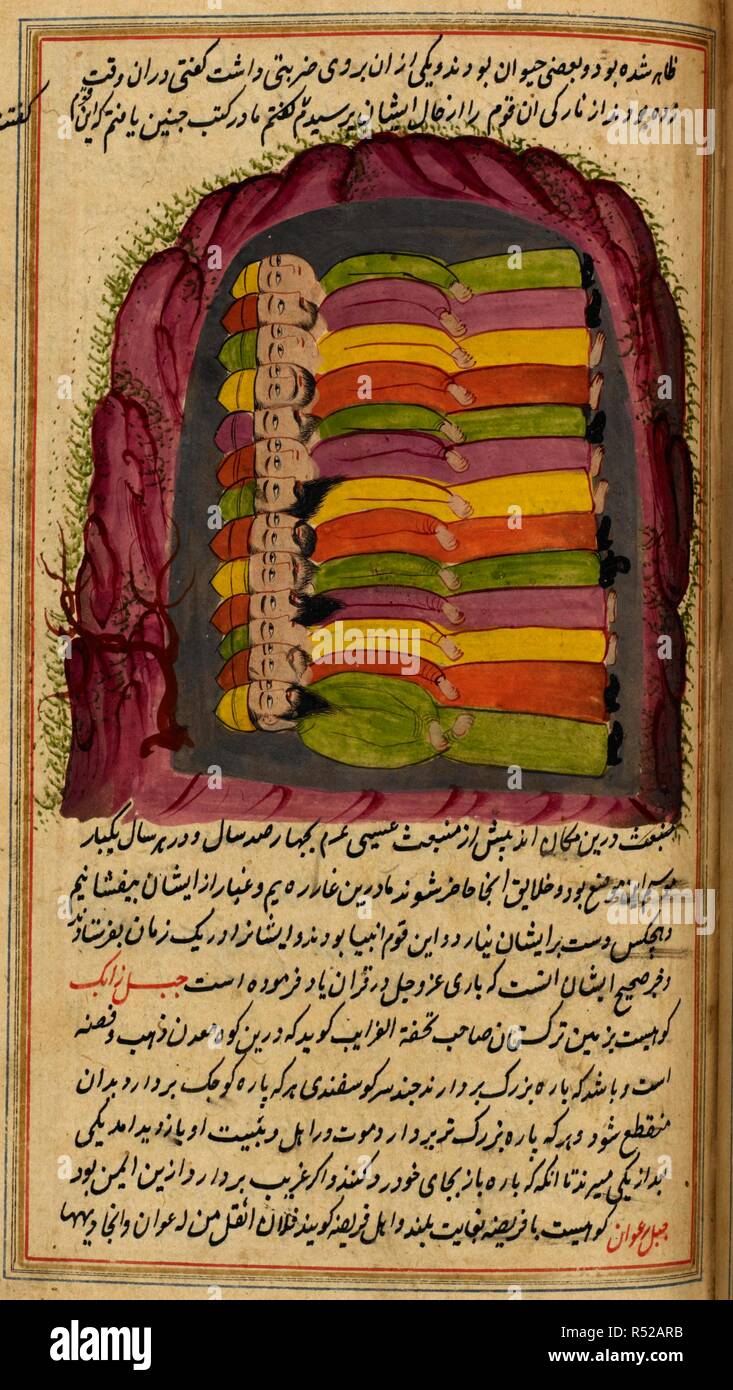 ظاهر شده بود و بعضی حیوان بودند و یکی از ان بر روی ضربتی داشت کفتی دران وقت
زده بودند از تارکی ان قوم را از حال ایشان پرسیدم کفتم ما در کتب چنین یافتم که این قوم
درین مکان اند پیش از مبعث عیسی عم بچهار صد سال و در هر سال یکبار
بود و خلایق انجا حاضر شوند ما درین غار رویم و غبار از ایشان بیفشانیم
و هیچکس دست بر ایشان نیارد و این قوم انبیا بودند و ایشانرا در یک زمان بفرستادند
و خبر صحیح ایشان انست که باری عز و جل در قران یاد فرموده است جبل زانک
کوهیست بزمین ترکستان صاحب تحفة الغرایب کوید که درین کوه معدن ذهب و فضه
است و باشد که پاره بزرک بردارند چند سر کوسفندی هر که پاره کوچک بردارد بدان
منقطع شود و هر که پاره بزرک تر بردارد موت در اهل و بیت او بازدید امد یکی
بعد از یکی میرند تا انکه که پاره باز بجای خود رد کنند و اکر غریب بردارد ازین ایمن بود
کوهیست با فریضه بغایت بلند و اهل فریضه کویند فلان اثقل من
alamy
a
www.alamy.com
Image ID: R52ARB